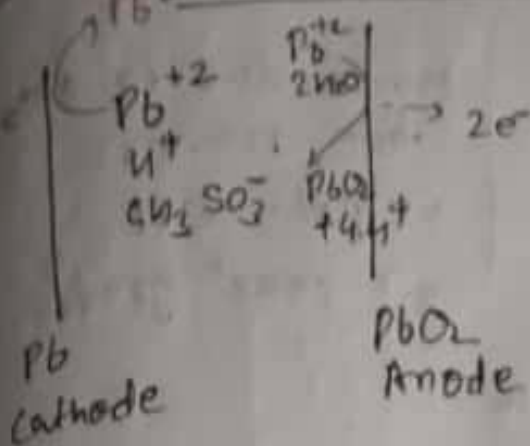 Pb
Pb+2
H+
CH3 SO3-
Pb+2
2H2O
2e-
PbO2
+4H+
Pb
Cathode
PbO2
Anode